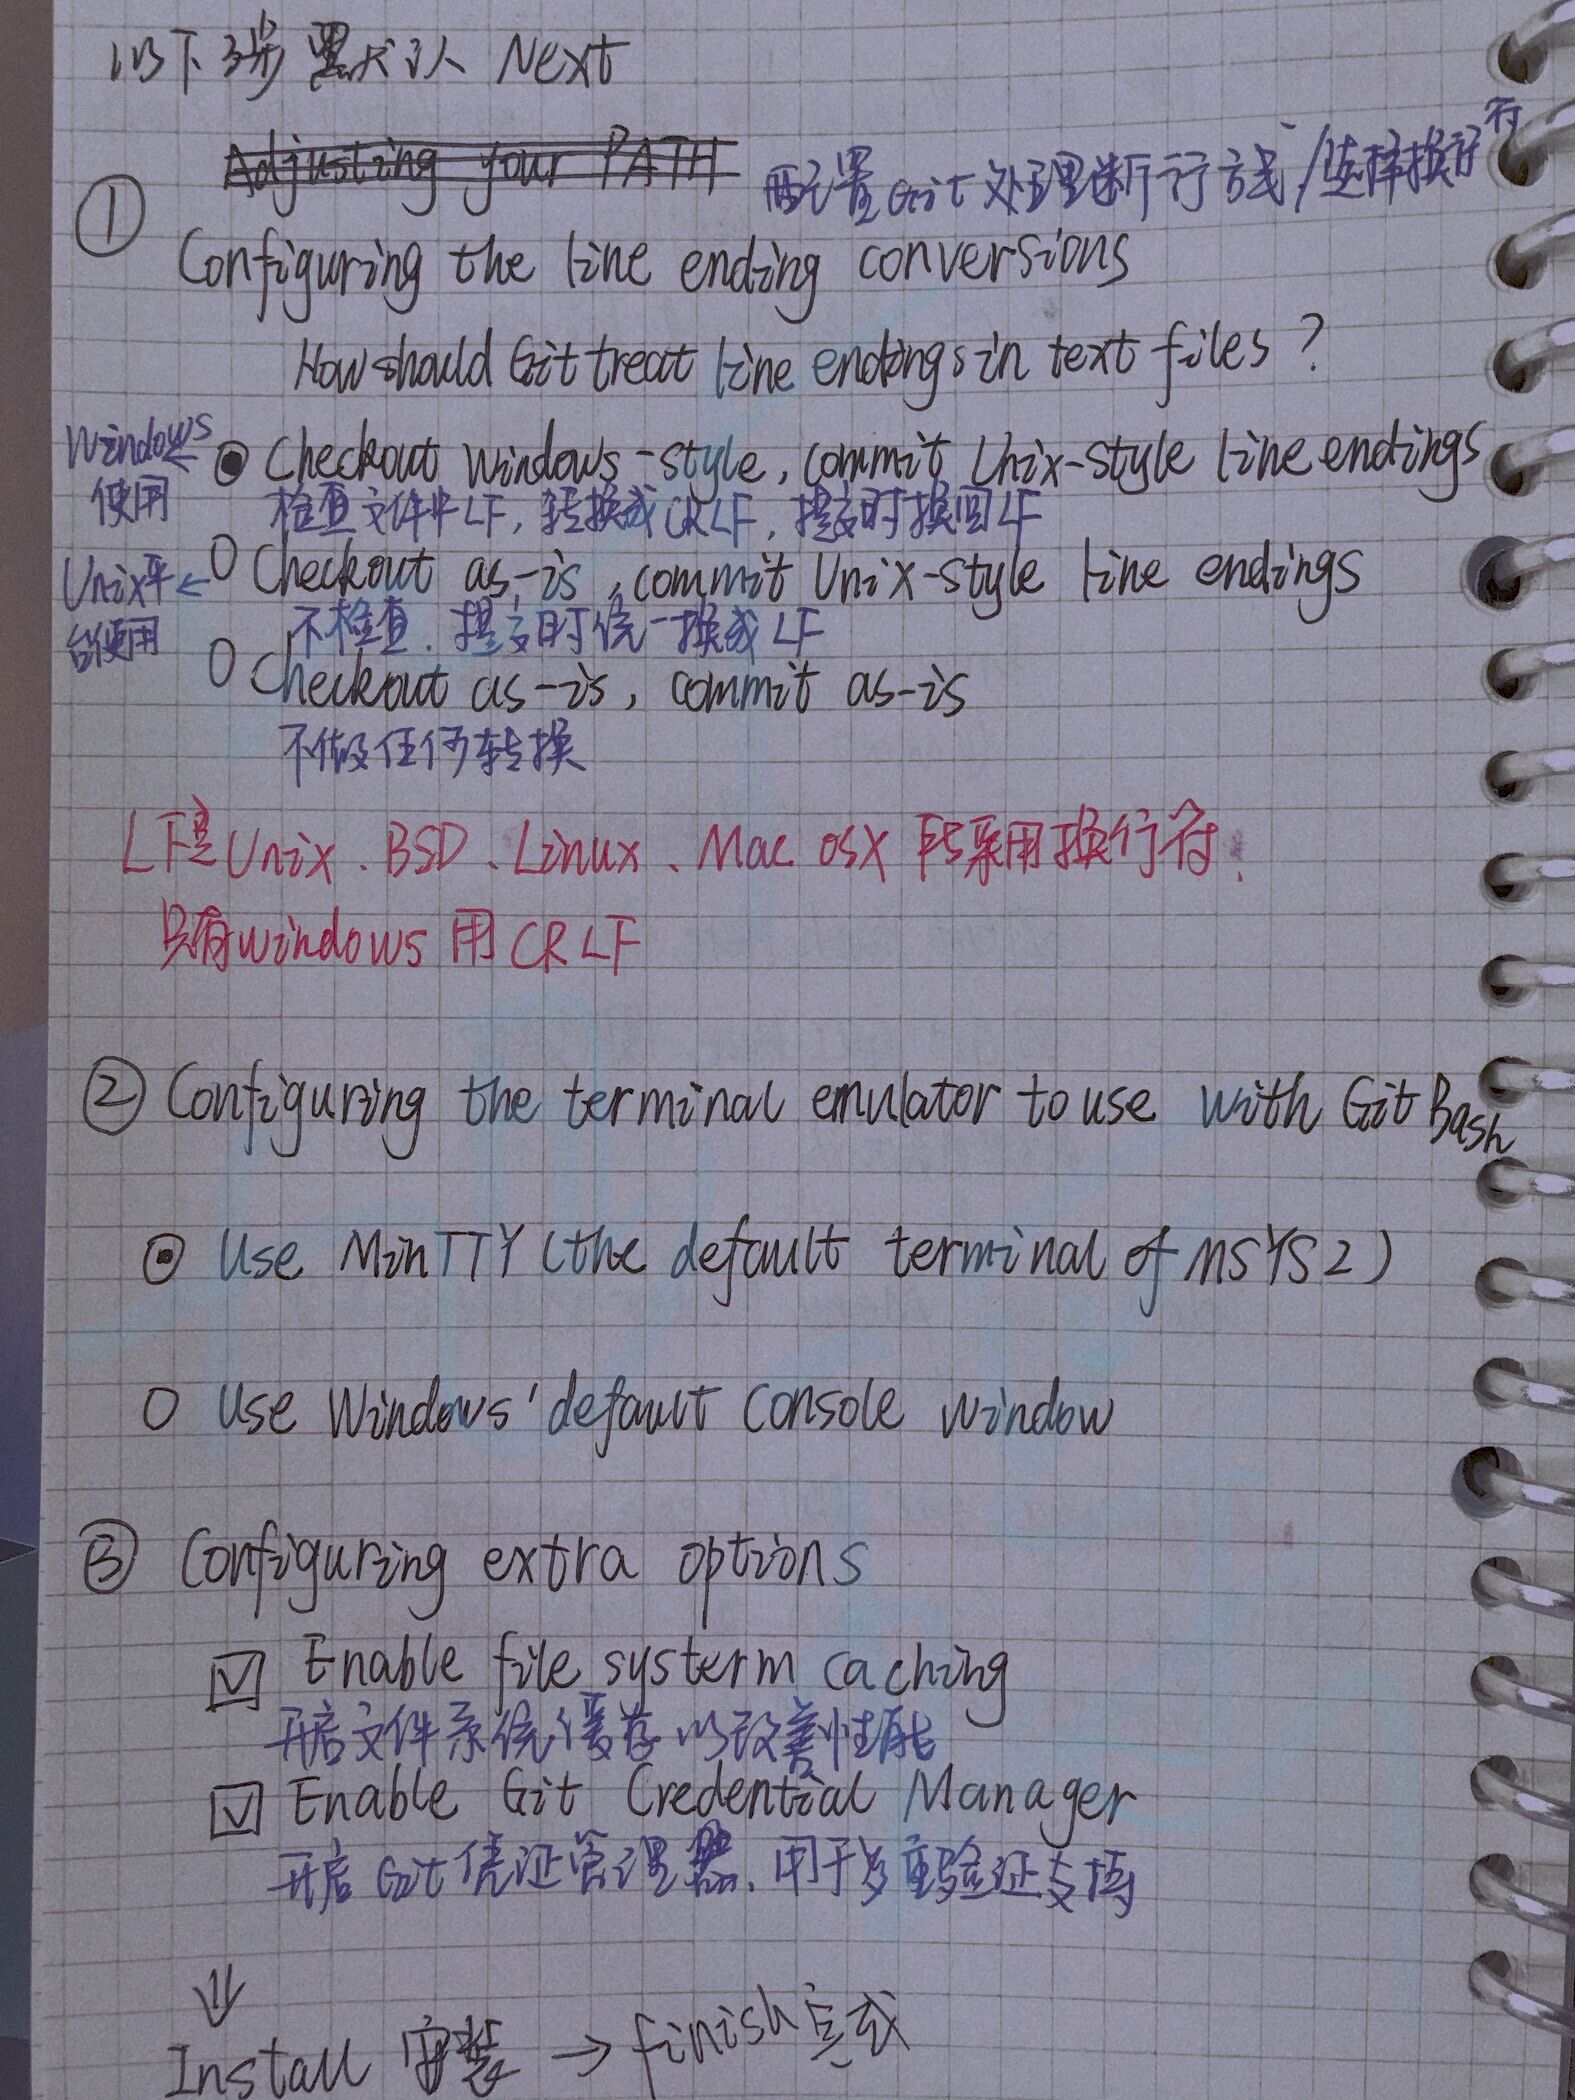 以下3步默认 Next
Adjusting your PATH
配置Git处理断行方式/选择换行符
① Configuring the line ending conversions
How should Git treat line endings in text files ?
Windows使用 ← ● Checkout Windows-style, commit Unix-style line endings
检查文件中LF, 转换成CRLF, 提交时换回LF
Unix平台使用 ← ○ Checkout as-is, commit Unix-style line endings
不检查. 提交时统一换成LF
○ Checkout as-is, commit as-is
不做任何转换
LF是Unix、BSD、Linux、Mac OSX 所采用换行符.
只有windows 用 CRLF
② Configuring the terminal emulator to use with Git Bash
⊙ Use MinTTY (the default terminal of MSYS2)
○ Use Windows' default console window
③ Configuring extra options
☑ Enable file systerm caching
开启文件系统缓存以改善性能
☑ Enable Git Credential Manager
开启 Git 凭证管理器. 用于多重验证支持
⇓
Install 安装 → finish 完成